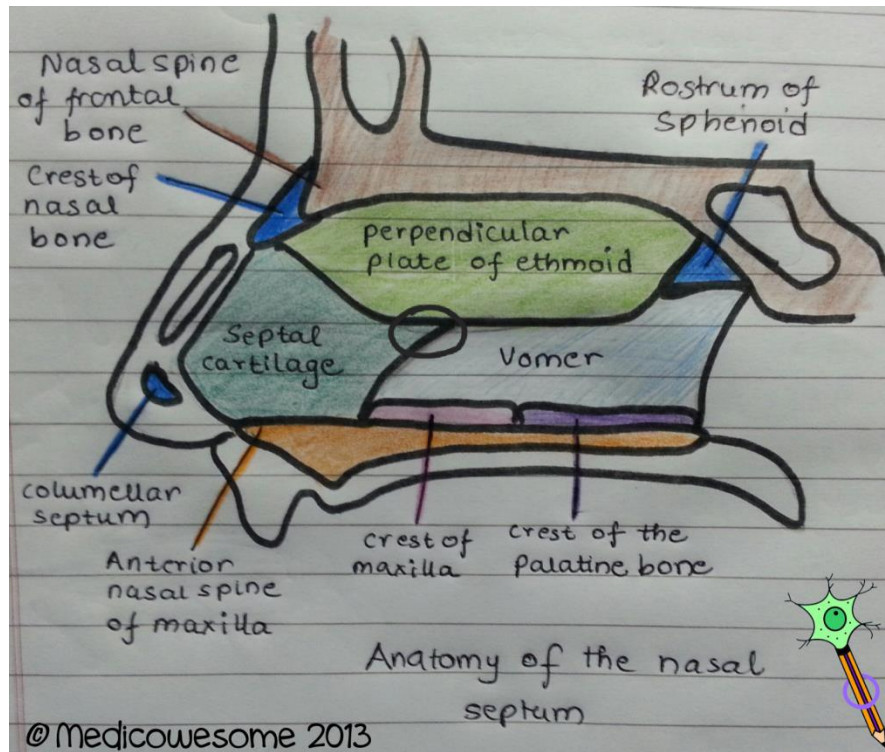 Nasal spine
of frontal
bone
Rostrum of
Sphenoid
Crest of
nasal
bone
perpendicular
plate of ethmoid
Septal
cartilage
Vomer
columellar
septum
Anterior
nasal spine
of maxilla
crest of
maxilla
crest of the
palatine bone
Anatomy of the nasal
septum
© Medicowesome 2013